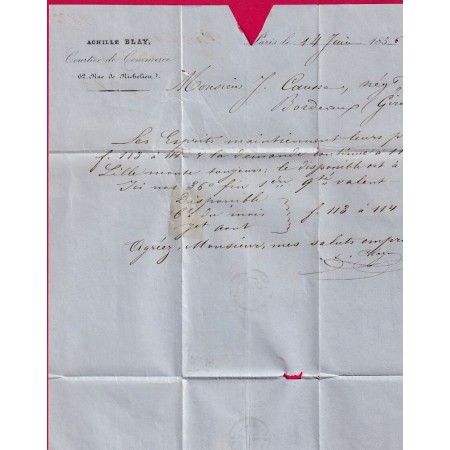 ACHILLE BLAY,
Courtier de Commerce
62, Rue de Richelieu.
Paris le 14 Juin 185
Monsieur J. Causse, nég
Bordeaux Gir
Les Esprits maintiennent leurs p
f. 113 à 114 & la demande continue
Lille monte toujours; le disponible est à
Ici nos 36° fin 1er valent
Disponible
Ct du mois
jet aout
f. 113 à 114
Agréez Monsieur, mes saluts empre